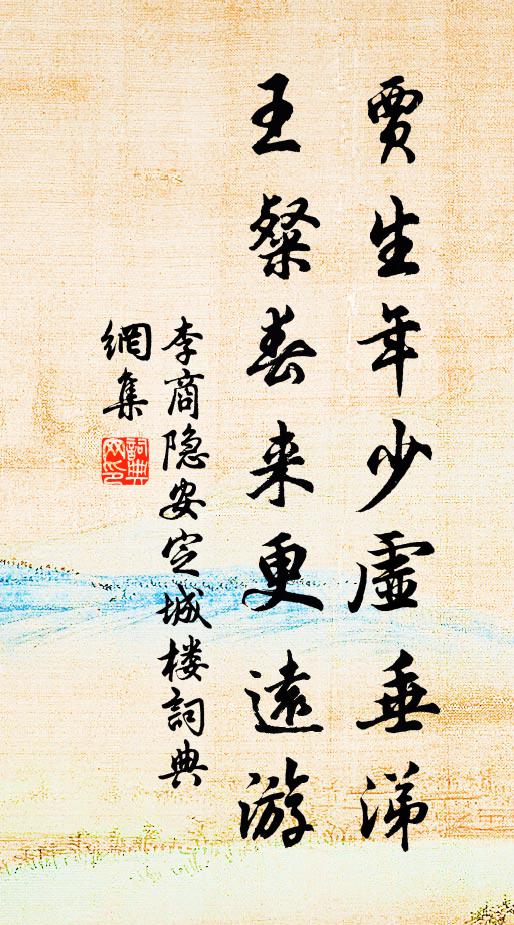 賈生年少虛垂涕
王粲春来更遠游
李商隐安定城楼詞典
網集
詞典網印